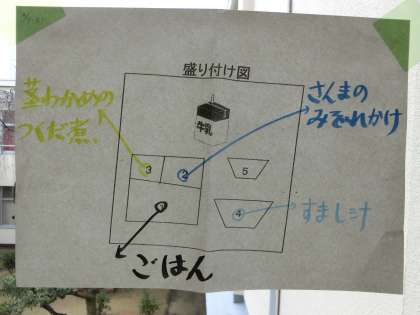 盛り付け図
茎わかめの
つくだ煮
さんまの
みぞれかけ
牛乳
3
2
5
4
すまし汁
ごはん